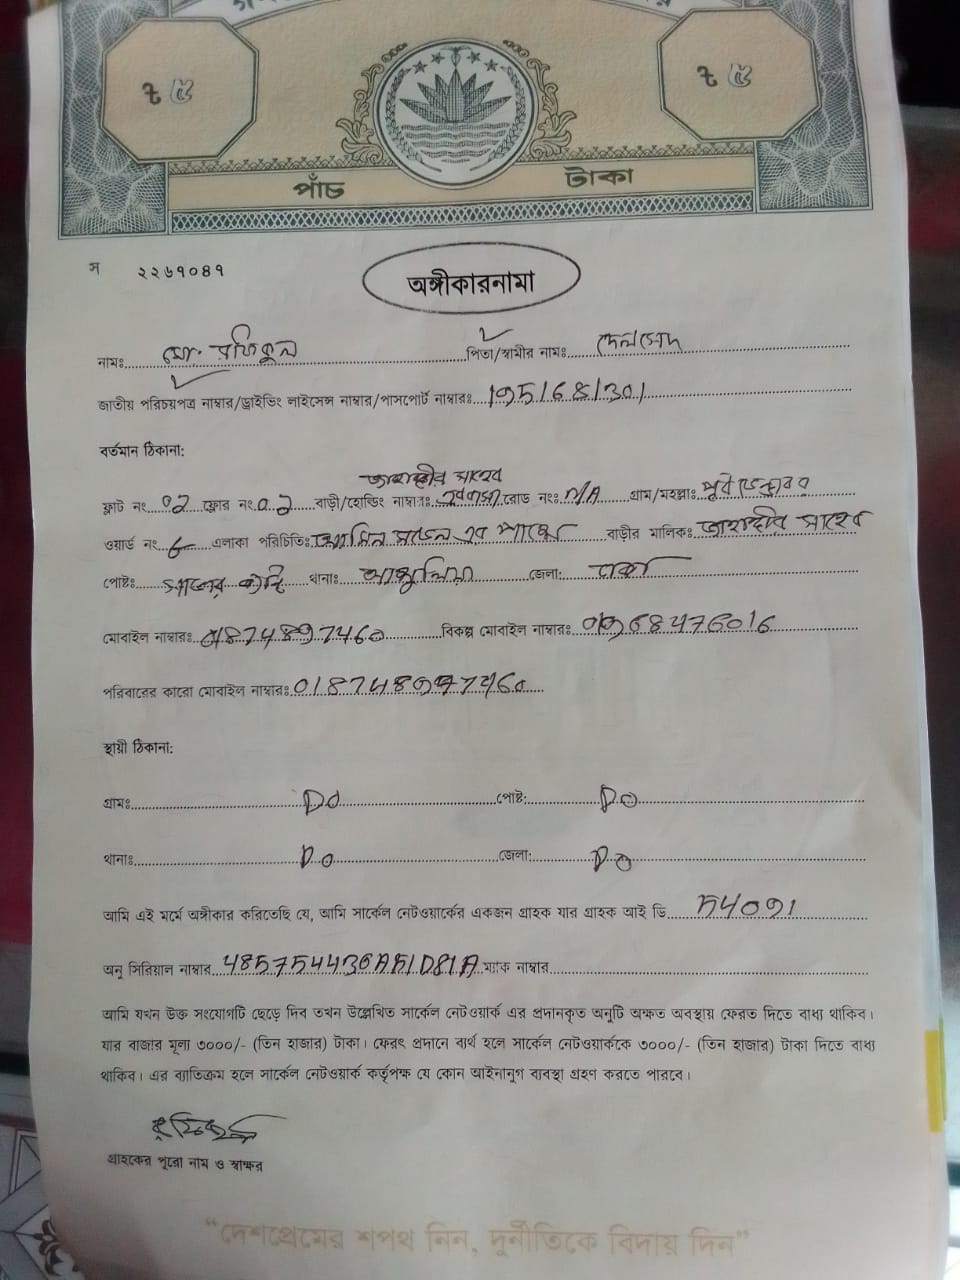 ৳ ৫ ৳ ৫
পাঁচ টাকা
স ২২৬৭০৪৭
অঙ্গীকারনামা
নামঃ মো. রফিকুল পিতা/স্বামীর নামঃ
জাতীয় পরিচয়পত্র নাম্বার/ড্রাইভিং লাইসেন্স নাম্বার/পাসপোর্ট নাম্বারঃ 1951681301
বর্তমান ঠিকানা:
জাহাঙ্গীর সাহেব
ফ্লাট নং 02 ফ্লোর নং 02 বাড়ী/হোল্ডিং নাম্বারঃ রোড নং: N/A গ্রাম/মহল্লাঃ পূর্ব
ওয়ার্ড নং 6 এলাকা পরিচিতিঃ বাড়ীর মালিকঃ জাহাঙ্গীর সাহেব
পোষ্টঃ থানাঃ আশুলিয়া জেলা: ঢাকা
মোবাইল নাম্বারঃ 01874897460 বিকল্প মোবাইল নাম্বারঃ 01968476016
পরিবারের কারো মোবাইল নাম্বারঃ 01874897460
স্থায়ী ঠিকানা:
গ্রামঃ Do পোষ্ট: Do
থানাঃ Do জেলা: Do
আমি এই মর্মে অঙ্গীকার করিতেছি যে, আমি সার্কেল নেটওয়ার্কের একজন গ্রাহক যার গ্রাহক আই ডি 54091
অনু সিরিয়াল নাম্বার 485754436A51D81A ম্যাক নাম্বার
আমি যখন উক্ত সংযোগটি ছেড়ে দিব তখন উল্লেখিত সার্কেল নেটওয়ার্ক এর প্রদানকৃত অনুটি অক্ষত অবস্থায় ফেরত দিতে বাধ্য থাকিব।
যার বাজার মূল্য ৩০০০/- (তিন হাজার) টাকা। ফেরৎ প্রদানে ব্যর্থ হলে সার্কেল নেটওয়ার্ককে ৩০০০/- (তিন হাজার) টাকা দিতে বাধ্য
থাকিব। এর ব্যতিক্রম হলে সার্কেল নেটওয়ার্ক কর্তৃপক্ষ যে কোন আইনানুগ ব্যবস্থা গ্রহণ করতে পারবে।
গ্রাহকের পুরো নাম ও স্বাক্ষর
“দেশপ্রেমের শপথ নিন, দুর্নীতিকে বিদায় দিন”